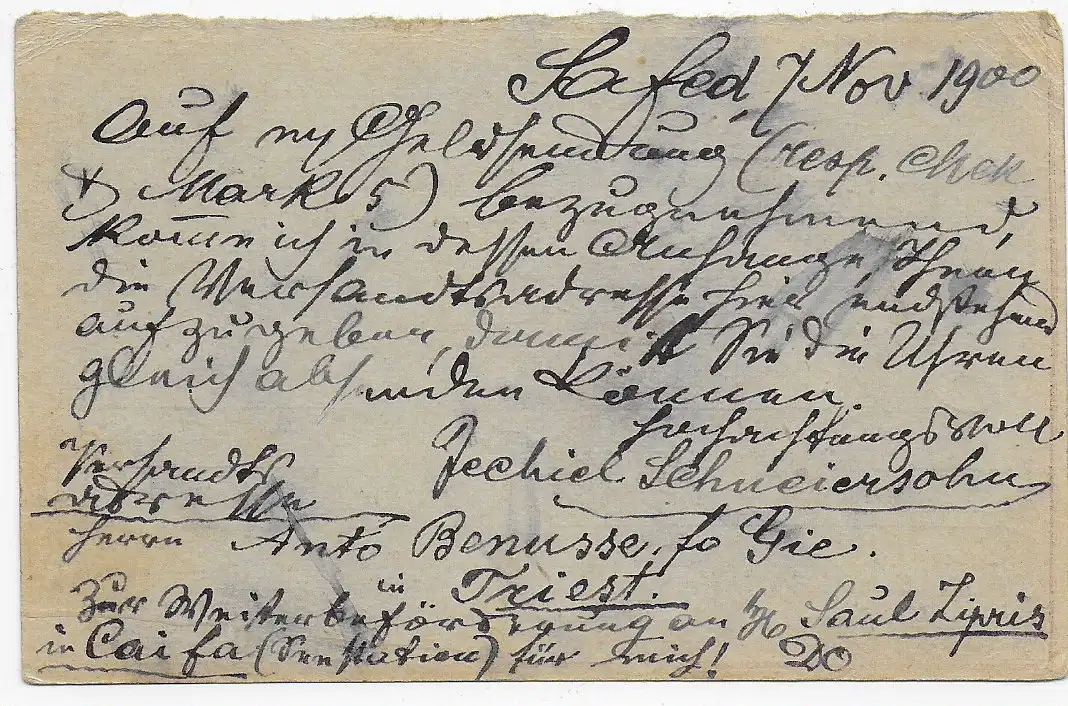 Safed, 7 Nov 1900
Auf my Geldsendung (resp. Chek
Mark 5) bezugnehmend,
komme ich in dessen Anhange Ihnen
die Versandtsadresse hier endstehend
aufzugeben, damit Sie die Uhren
gleich absenden können.
Hochachtungsvoll
Jechiel Schneiersohn
Versandts
adresse
Herrn Anto Benusse, Cie.
in Triest.
Zur Weiterbeförderung an Saul Zipris
in Caifa (Seestation) für mich! DO